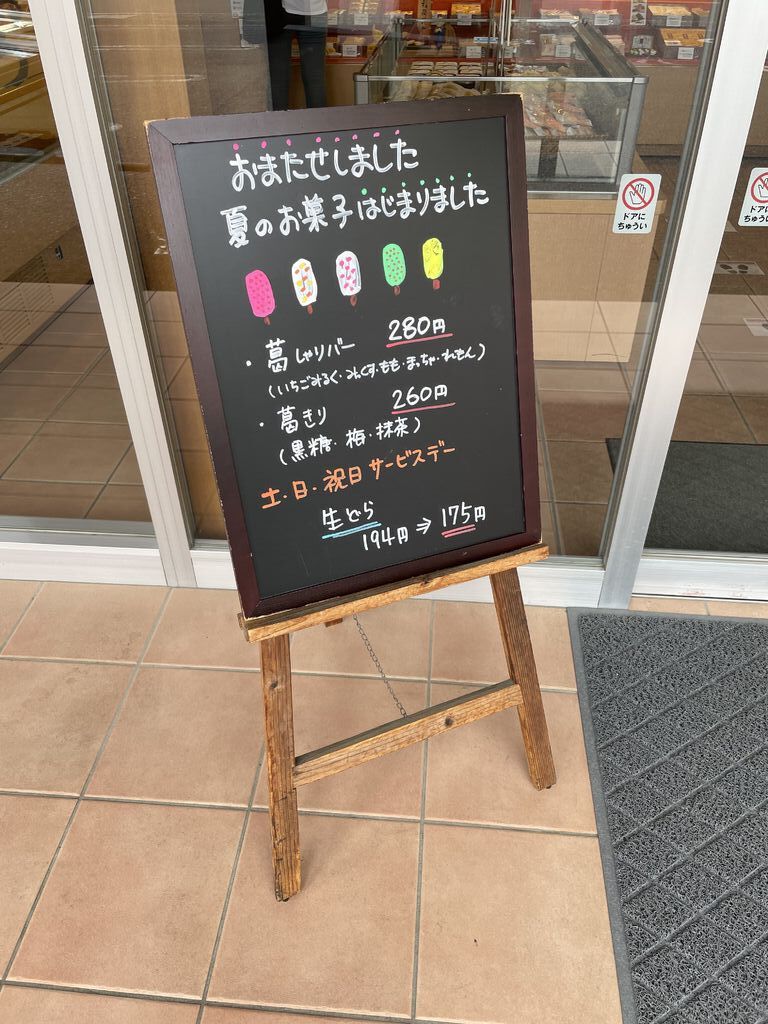 おまたせしました
夏のお菓子はじまりました
・葛しゃりバー 280円
(いちごみるく・みっくす・もも・まっちゃ・れもん)
・葛きり 260円
(黒糖・梅・抹茶)
土・日・祝日 サービスデー
生どら
194円 ⇒ 175円
ドアに
ちゅうい
ドアに
ちゅうい